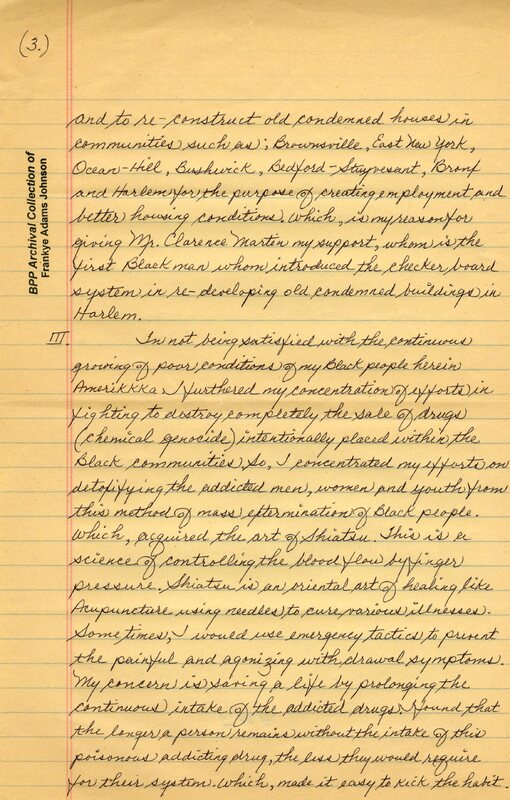 (3.)
BPP Archival Collection of
Frankye Adams Johnson
and to re-construct old condemned houses in
communities such as; Brownsville, East New York,
Ocean-Hill, Bushwick, Bedford-Stuyvesant, Bronx
and Harlem for the purpose of creating employment and
better housing conditions. Which, is my reason for
giving Mr. Clarence Marten my support, whom is the
first Black man whom introduced the checker board
system in re-developing old condemned buildings in
Harlem.
III. In not being satisfied with the continuous
growing of poor conditions of my Black people herein
Amerikkka. I furthered my concentration of efforts in
fighting to destroy completely the sale of drugs
(chemical genocide) intentionally placed within the
Black communities. So, I concentrated my efforts on
detoxifying the addicted men, women and youth from
this method of mass extermination of Black people.
Which, acquired the art of Shiatsu. This is a
science of controlling the blood flow by finger
pressure. Shiatsu is an oriental art of healing like
Acupuncture using needles, to cure various illnesses.
Some times, I would use emergency tactics to prevent
the painful and agonizing with drawal symptoms.
My concern is saving a life by prolonging the
continuous intake of the addicted drugs. I found that
the longer a person remains without the intake of this
poisonous addicting drug, the less they would require
for their system. Which, made it easy to kick the habit.